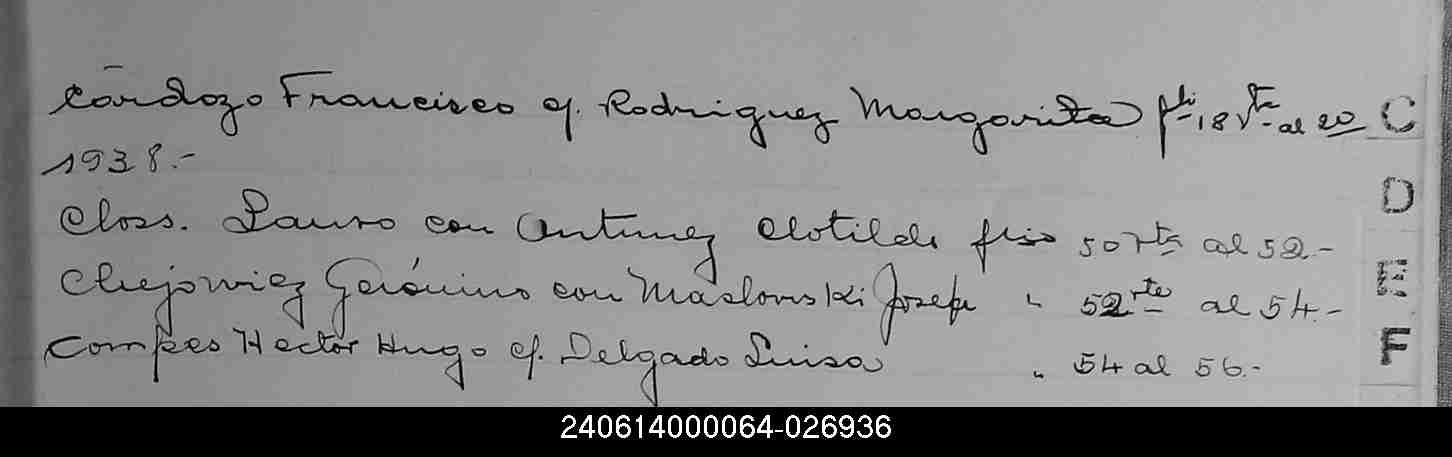 Cardozo Francisco c/. Rodriguez Margarita fli-18 Vta al 20 C
1938.-
Closs. Lauro con Antunez Clotilde flio 50 vta al 52.-
D
Chejowicz Gerónimo con Maslowski Josefa " 52 vta al 54.-
E
Compes Hector Hugo c/. Delgado Luisa " 54 al 56.-
F
240614000064-026936